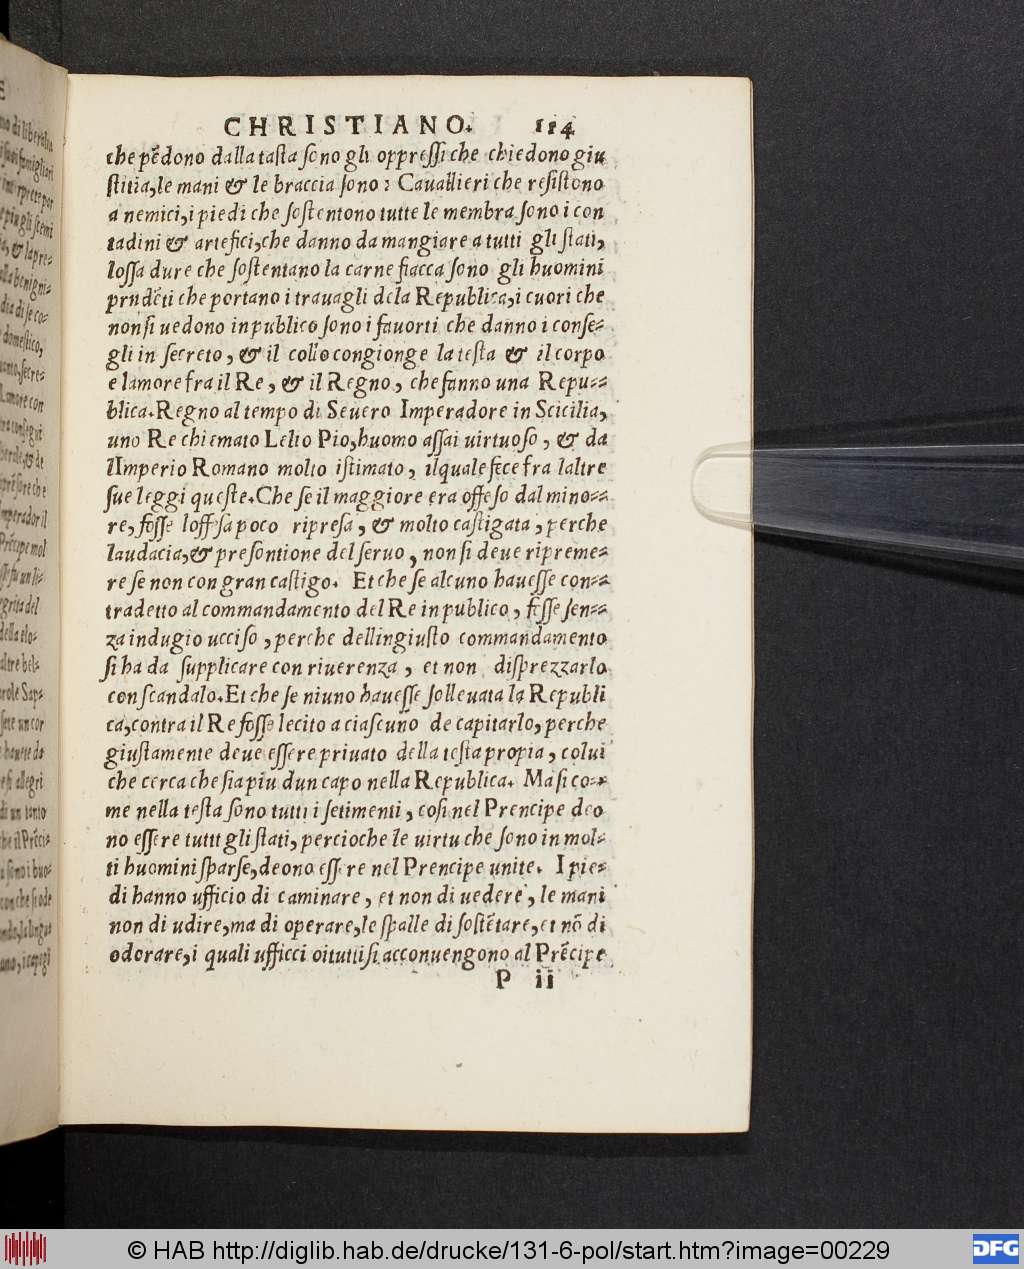 CHRISTIANO. 114
che pẽdono dalla tasta sono gli oppressi che chiedono giu
stitia, le mani & le braccia sono i Cauallieri che resistono
a nemici, i piedi che sostentono tutte le membra sono i con
tadini & artefici, che danno da mangiare a tutti gli stati,
lossa dure che sostentano la carne fiacca sono gli huomini
prudẽti che portano i trauagli dela Republica, i cuori che
non si uedono in publico sono i fauorti che danno i conse-
gli in secreto, & il collo congionge la testa & il corpo
e lamore fra il Re, & il Regno, che fanno una Repu-
blica. Regno al tempo di Seuero Imperadore in Scicilia,
uno Re chiemato Lelio Pio, huomo assai uirtuoso, & da
lImperio Romano molto istimato, ilquale fece fra laltre
sue leggi queste. Che se il maggiore era offeso dal mino-
re, fosse loffesa poco ripresa, & molto castigata, perche
laudacia, & presontione del seruo, non si deue ripreme-
re se non con gran castigo. Et che se alcuno hauesse con-
tradetto al commandamento del Re in publico, fosse sen-
za indugio ucciso, perche dellingiusto commandamento
si ha da supplicare con riuerenza, et non disprezzarlo
con scandalo. Et che se niuno hauesse solleuata la Republi
ca, contra il Re fosse lecito a ciascuno de capitarlo, perche
giustamente deue essere priuato della testa propia, colui
che cerca che sia piu dun capo nella Republica. Ma si co-
me nella testa sono tutti i setimenti, cosi nel Prencipe deo
no essere tuttt gli stati, percioche le uirtu che sono in mol-
ti huomini sparse, deono essere nel Prencipe unite. I pie-
di hanno ufficio di caminare, et non di uedere, le mani
non di udire, ma di operare, le spalle di sostẽtare, et nõ di
odorare, i quali ufficci oituttisi acconuengono al Prẽcipe
P ii
© HAB http://diglib.hab.de/drucke/131-6-pol/start.htm?image=00229
DFG